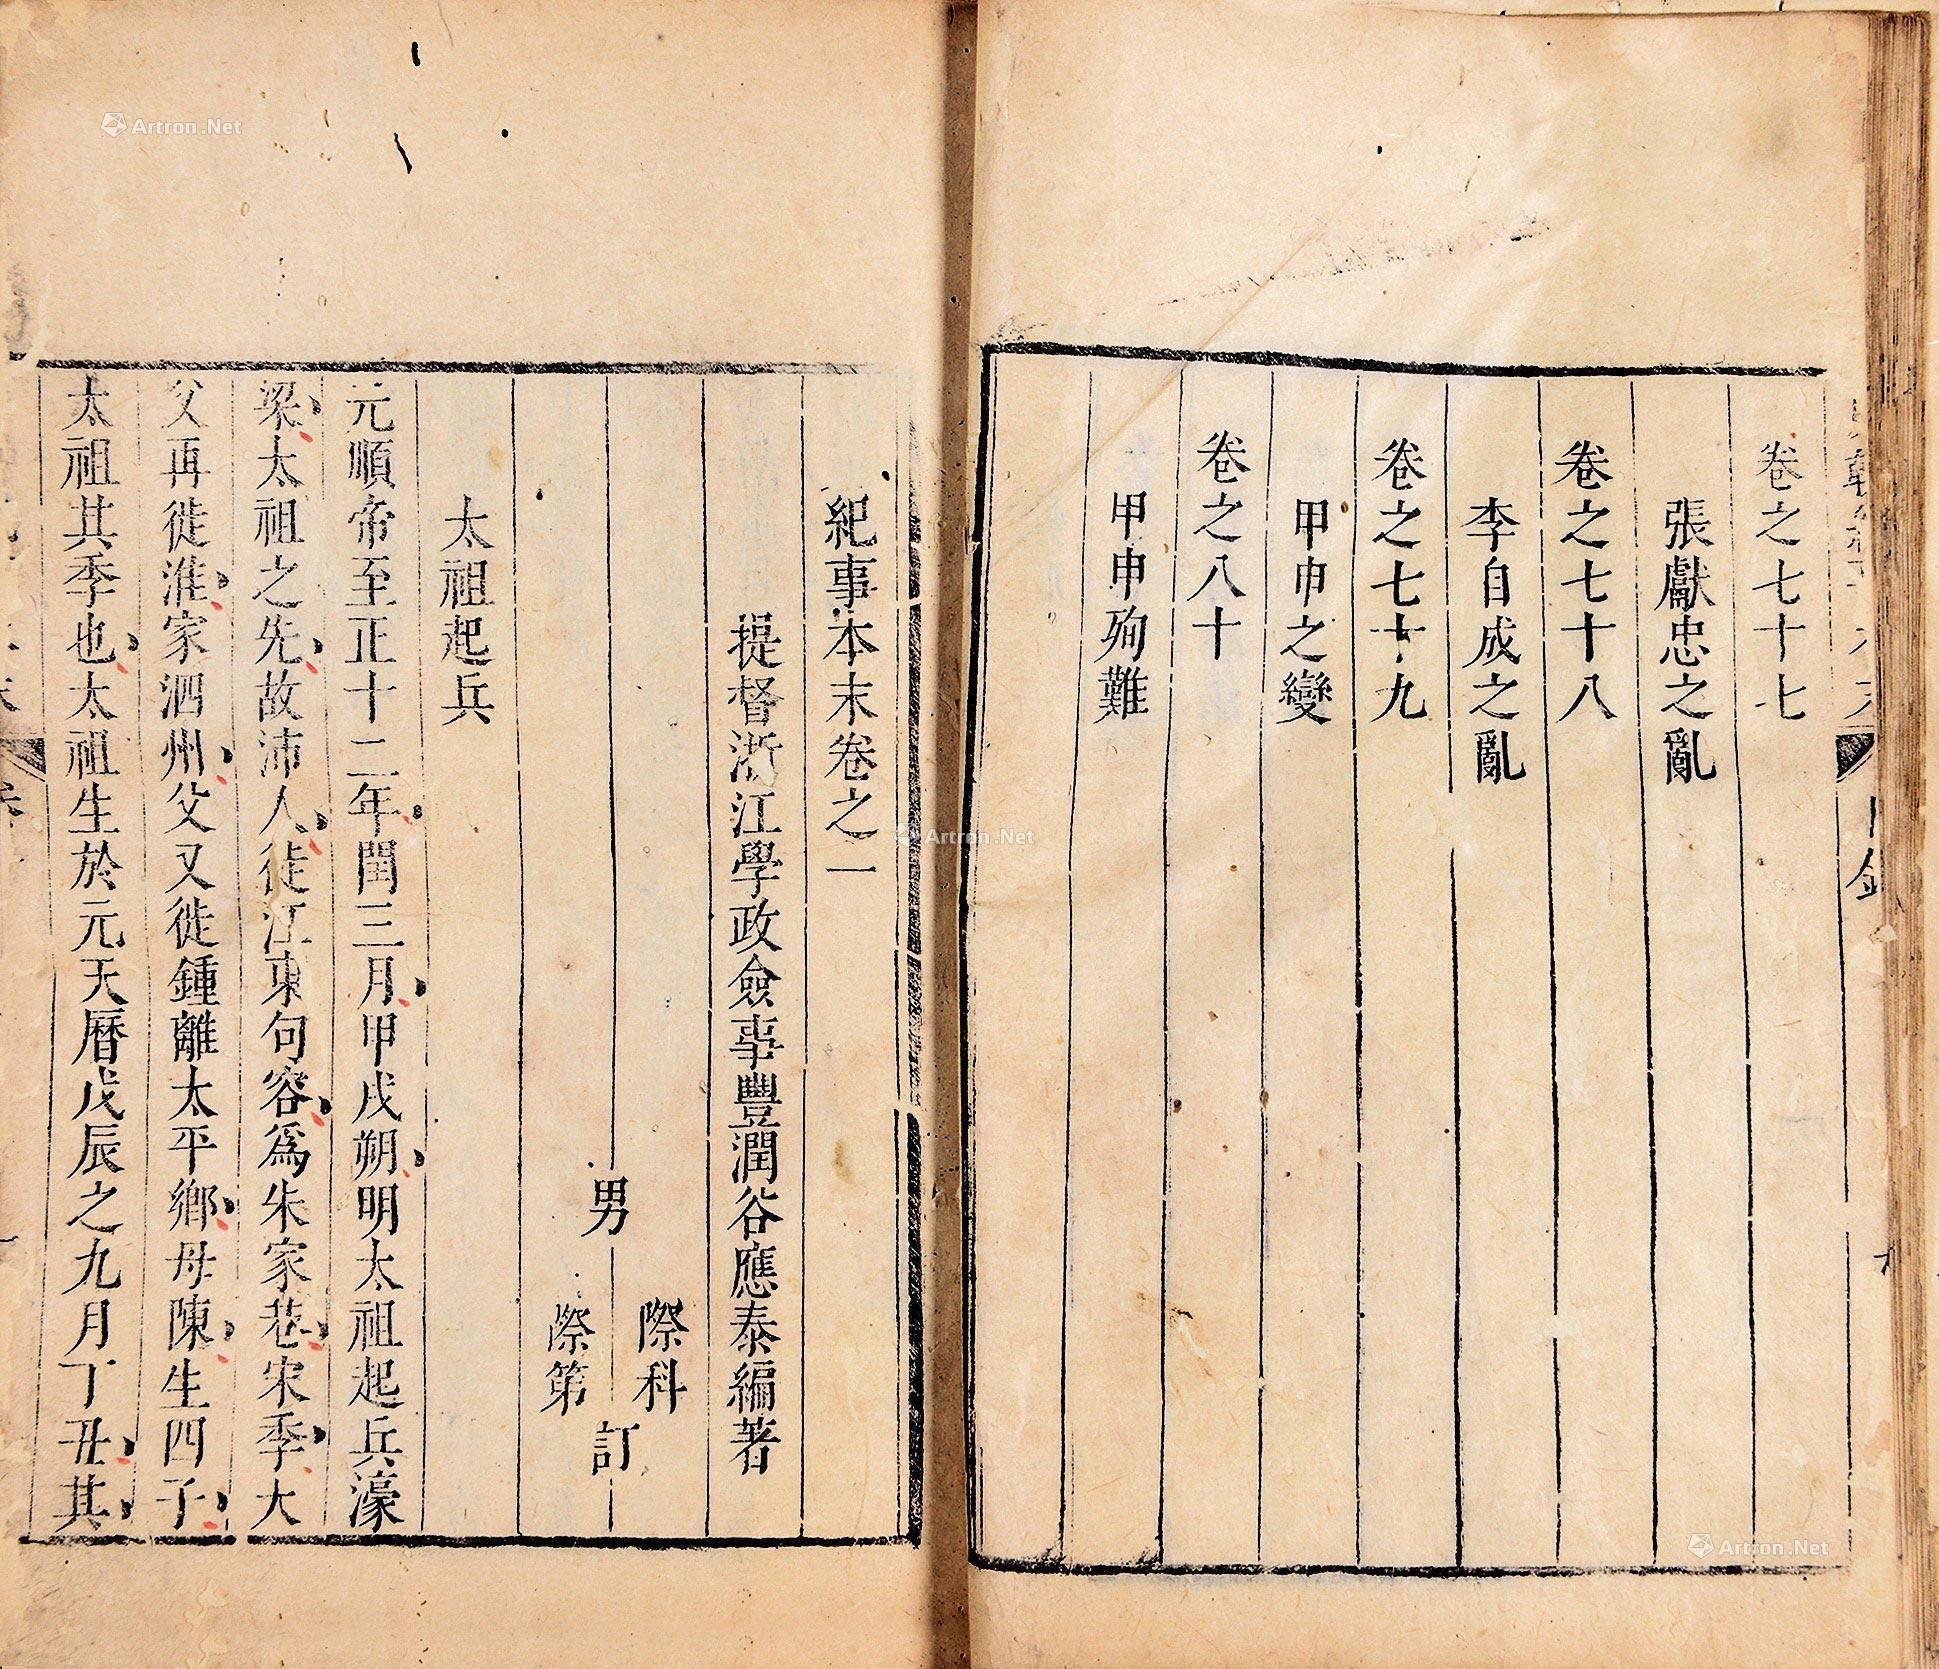 卷之七十七
張獻忠之亂
卷之七十八
李自成之亂
卷之七十九
甲申之變
卷之八十
甲申殉難
紀事本末卷之一
提督浙江學政僉事豐潤谷應泰編著
男
際科
際第
訂
太祖起兵
元順帝至正十二年閏三月甲戌朔明太祖起兵濠
梁太祖之先故沛人徙江東句容爲朱家巷宋季大
父再徙淮家泗州父又徙鍾離太平鄉母陳生四子
太祖其季也太祖生於元天曆戊辰之九月丁丑其
Artron.Net
Artron.Net
Artron.Net